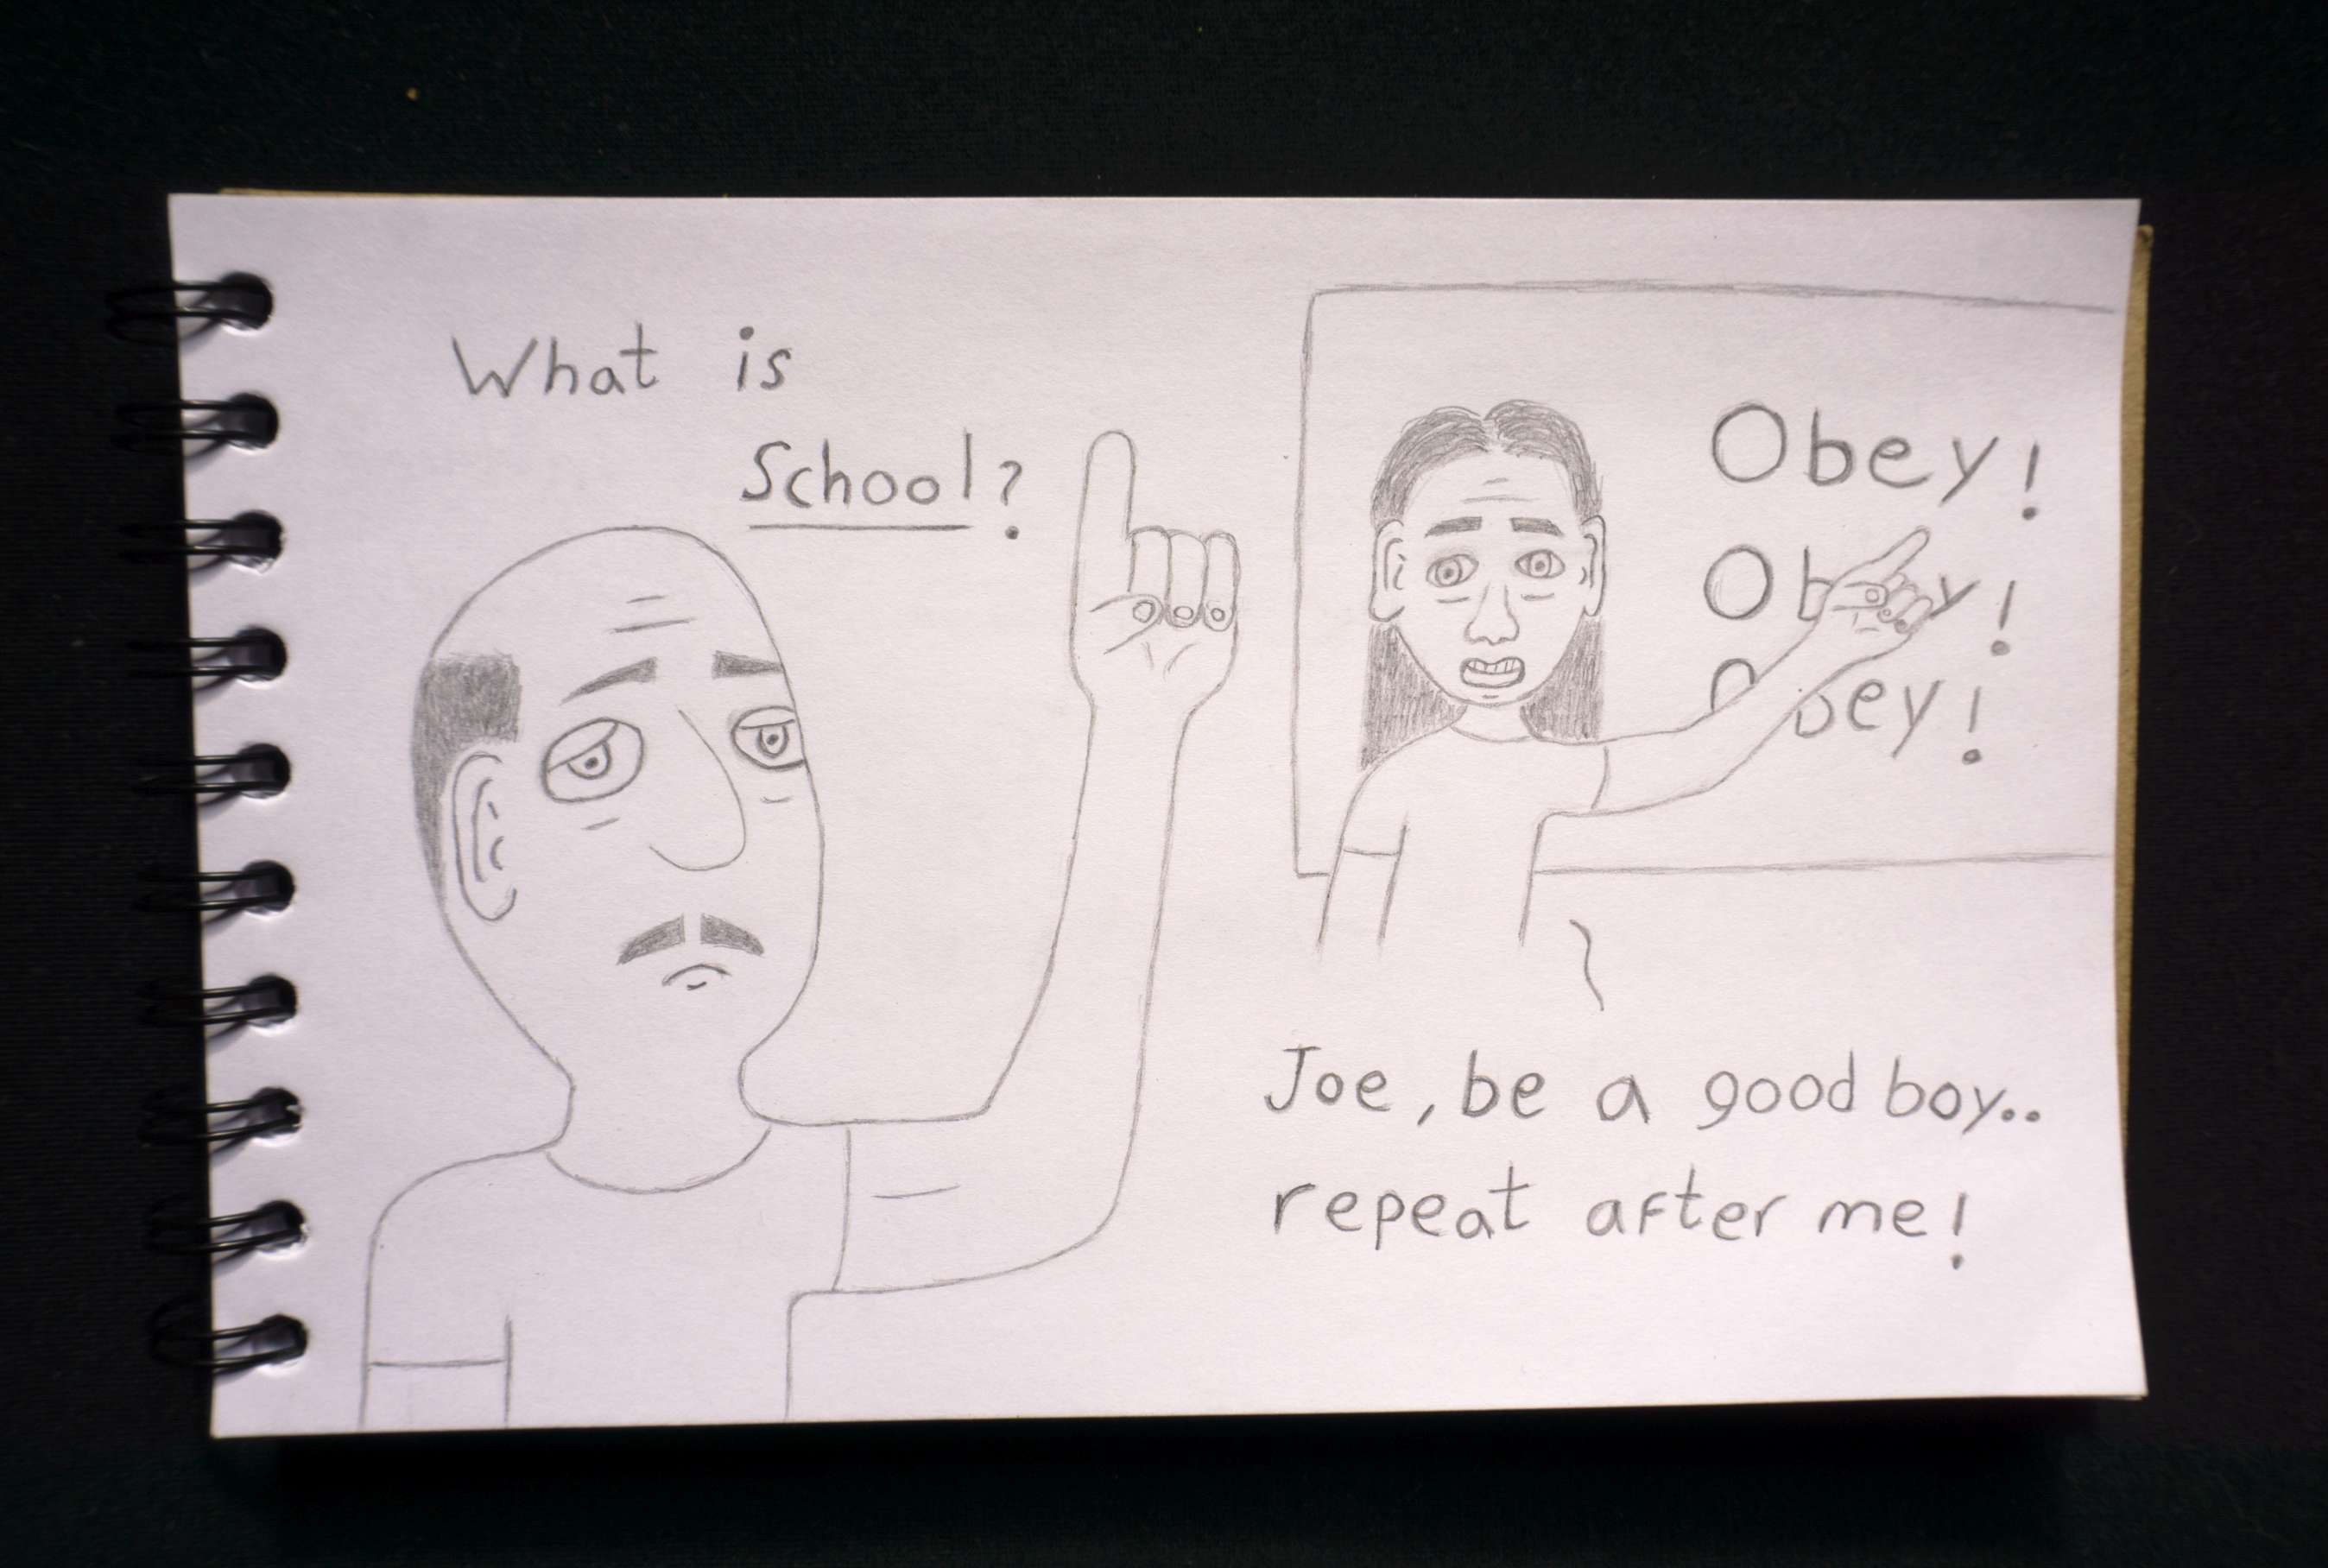 What is
School?
Obey!
Obey!
Obey!
Joe, be a good boy..
repeat after me!